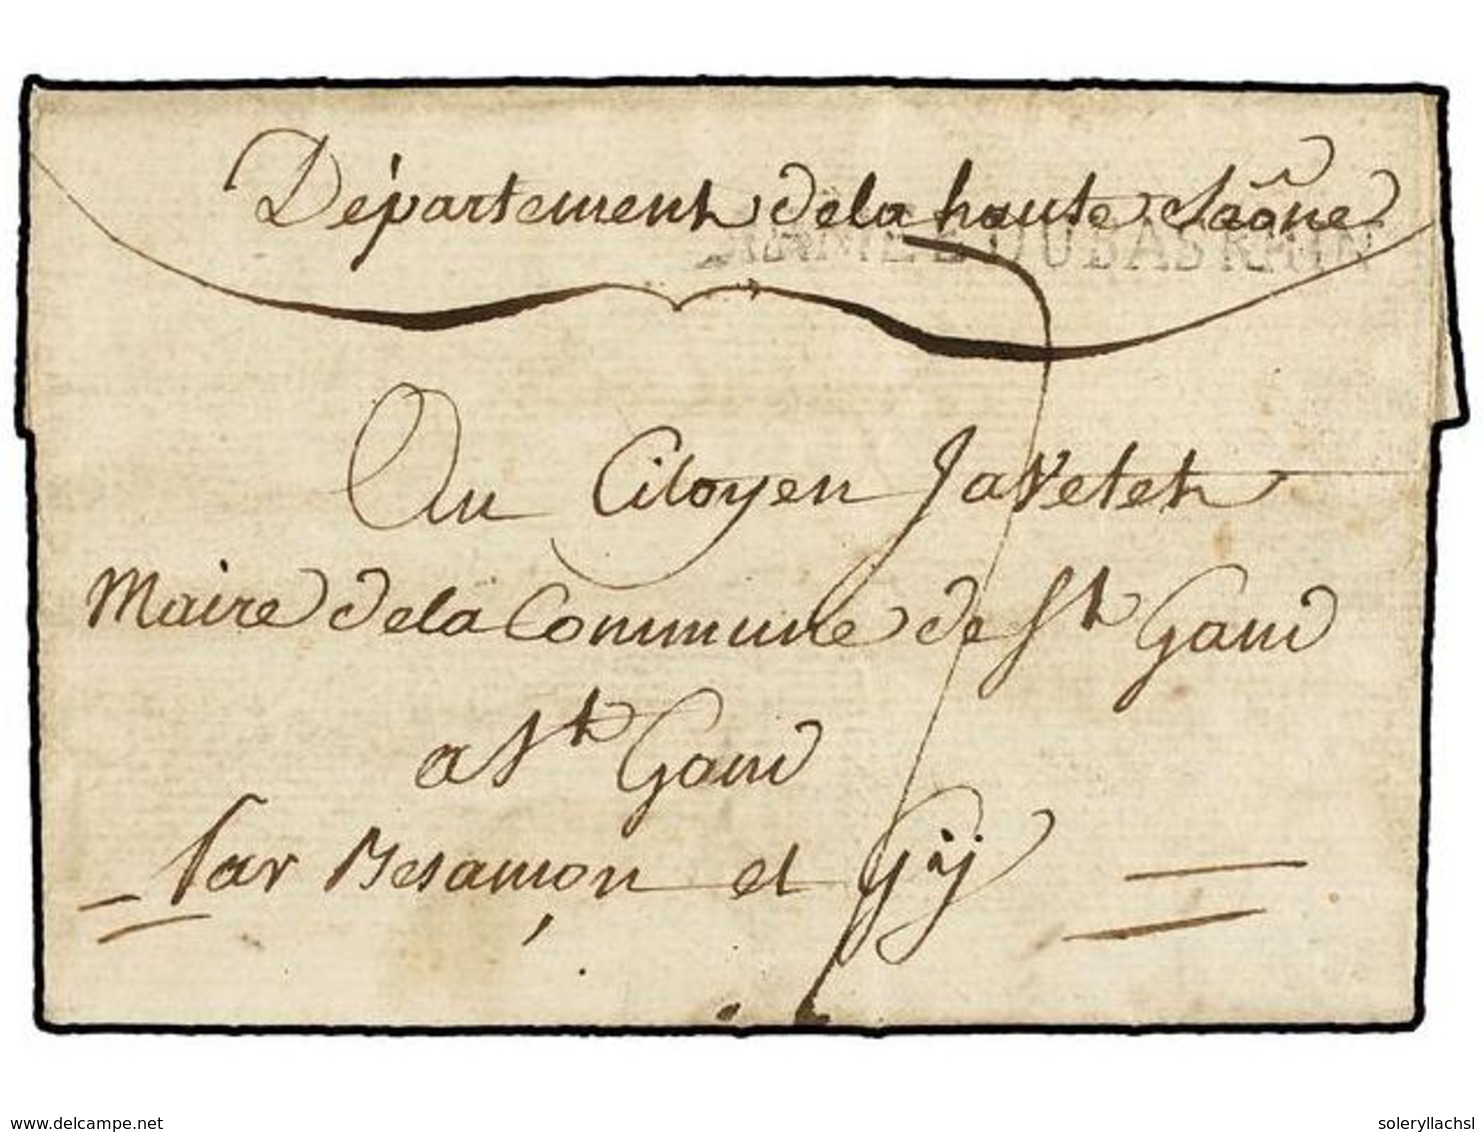 Département dela haute Saône
ARMÉE DU BAS RHIN
Au Citoyen Javeteh
Maire dela Commune de St Gand
a St Gand
par Besançon et Gÿ
delcampe.net
soleryllachsl